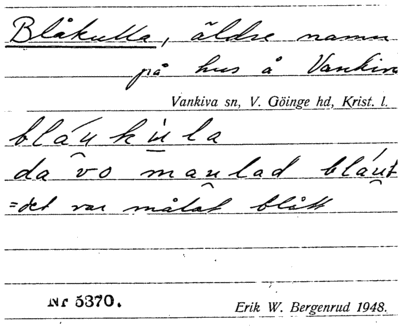 Blåkulla, äldre namn
på hus å Vankiva
Vankiva sn, V. Göinge hd, Krist. l.
bláu̯ku̱la
da vo mau̯lad bláu̯t
=det var målat blått
Nr 5370.
Erik W. Bergenrud 1948.